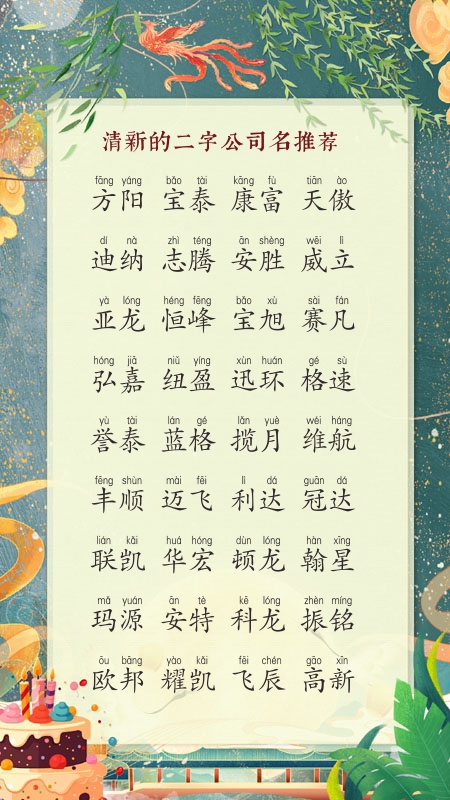 清新的二字公司名推荐
fāng yáng bǎo tài kāng fù tiān ào
方阳 宝泰 康富 天傲
dí nà zhì téng ān shèng wēi lì
迪纳 志腾 安胜 威立
yà lóng héng fēng bǎo xù sài fán
亚龙 恒峰 宝旭 赛凡
hóng jiā niǔ yíng xùn huán gé sù
弘嘉 纽盈 迅环 格速
yù tài lán gé lǎn yuè wéi háng
誉泰 蓝格 揽月 维航
fēng shùn mài fēi lì dá guān dá
丰顺 迈飞 利达 冠达
lián kǎi huá hóng dùn lóng hàn xīng
联凯 华宏 顿龙 翰星
mǎ yuán ān tè kē lóng zhèn míng
玛源 安特 科龙 振铭
ōu bāng yào kǎi fēi chén gāo xīn
欧邦 耀凯 飞辰 高新